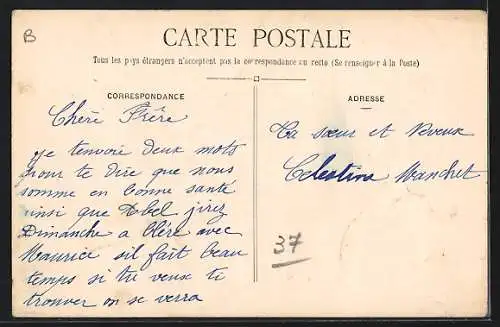 B
CARTE POSTALE
Tous les pays étrangers n'acceptent pas la correspondance au recto (Se renseigner à la Poste)
CORRESPONDANCE
Chéri Frére
Je tenvoie deux mots
pour te dire que nous
somme en bonne santé
insi que Abel jirez
Dimanche a Cléré avec
Maurice sil fait beau
temps si tu veux ti
trouver on se verra
ADRESSE
Ta sœur et Neveux
Celestine Manchet
37